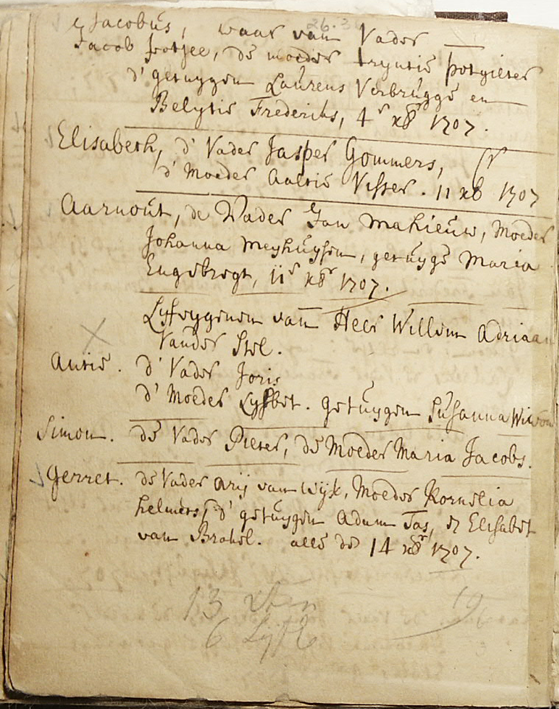 Jacobus, waar van Vader
26.31
Jacob potjee, de moeder tryntie potgieter
d' getuygen Laurens Verbrugge en
Belytie Frederiks, 4e x8r 1707.
Elisabeth, d' Vader Jasper Gommers,
d' Moeder Aaltie Visser. 11 x8 1707
Aarnout, de Vader Jan Mahieuw, Moeder
Johanna Meyhuysen, getuyge Maria
Engebregt, 11e x8r 1707.
Lyfeygenen van Heer Willem Adriaan
Vander Stel.
Antie. d' Vader Joris
d' Moeder Lysbet. getuygen Susanna
Simon. de Vader Pieter, de Moeder Maria Jacobs.
Gerret. de Vader Arij van Wijk, Moeder Kornelia
helmers, d' getuygen Adam Tas, & Elisabet
van Brakel. alle den 14 x8r 1707.
13
19
6